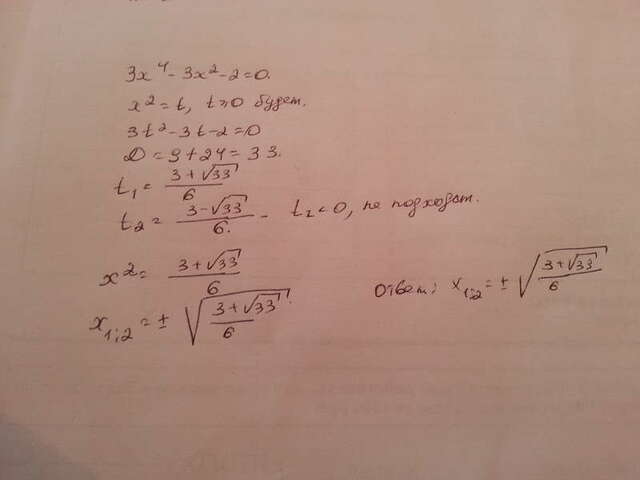 3x⁴-3x²-2=0.
x²=t, t≥0 будет.
3t²-3t-2=0
D=9+24=33.
t₁=(3+√33)/6
t₂=(3-√33)/6. - t₂<0, не подходит.
x²=(3+√33)/6
x₁;₂=±√((3+√33)/6).
Ответ: x₁;₂=±√((3+√33)/6)